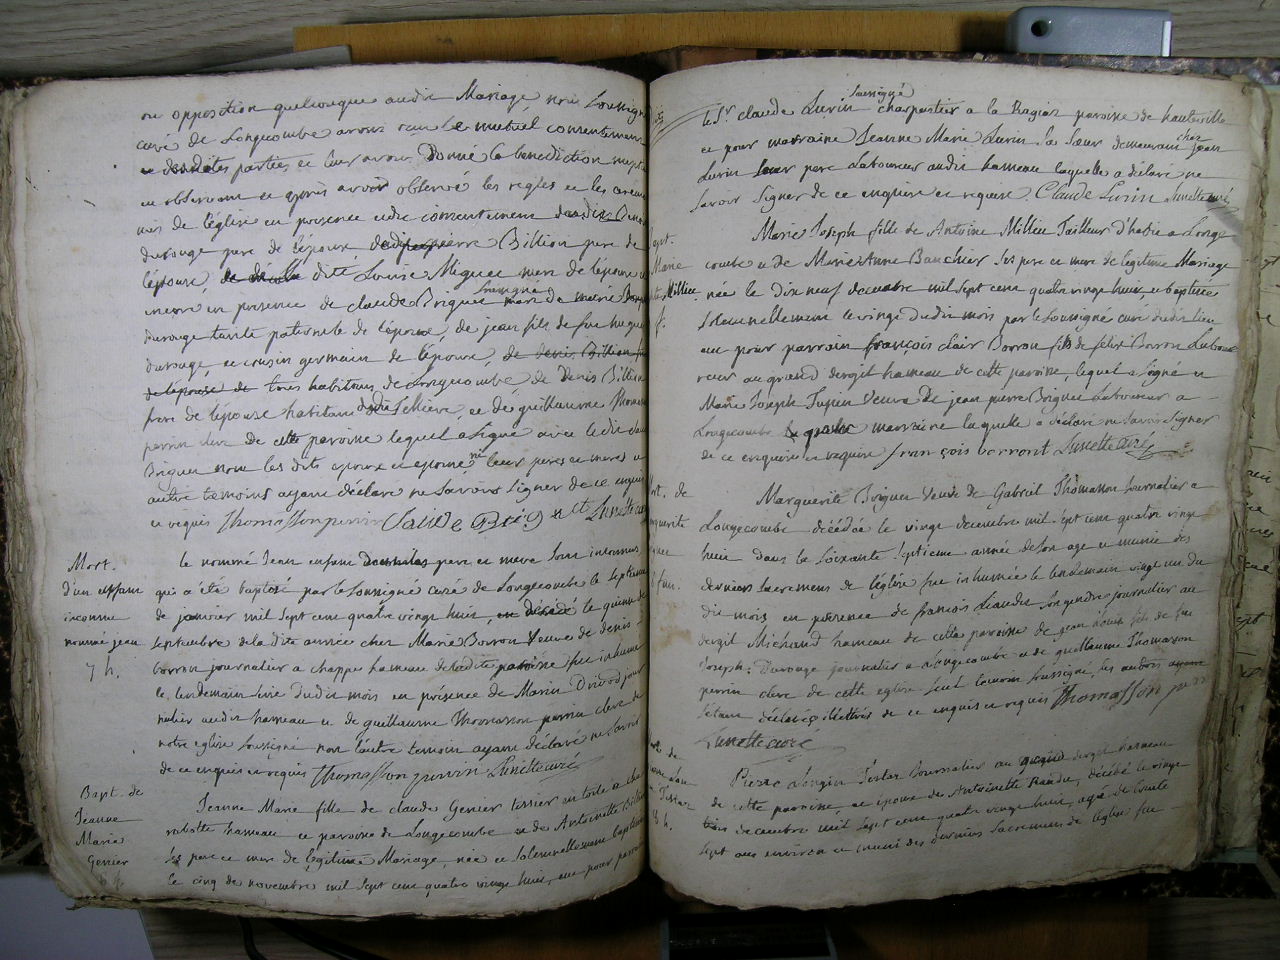 ou opposition quelconque audit Mariage, nous soussigné
curé de Longecombe avons reçu le mutuel consentement
desdites parties, et leur avons donné la benediction nupt
en observant et après avoir observé les regles et les cerem
nies de l'église en presence et du consentement
durouge pere de l'époux, de pierre Billion pere de
l'épouse, dite Louise Miguet mere de l'épouse
encore en presence de claude Briguet soussigné mari de
durouge tante paternele de l'époux, de jean fils de feu
durouge, et cousin germain de l'époux, de denis Billion
de l'épouse de tous habitans de Longecombe, de Denis Billion
frere de l'épouse habitant et de guillaume Thomasson
perrin clerc de cette paroisse lequel a signé avec ledit claude
Briguet non lesdits epoux et epouse ni leur peres et meres et
autre temoins ayant déclaré ne savoir signer de ce enquis
et requis Thomasson perrin Claude Brig Lunette curé
Mort.
d'un enfant
inconnu
nommé jean
7 h.
le nommé Jean enfant dont les pere et mere sont inconnus,
qui a été baptisé par le soussigné curé de Longecombe le septieme
de janvier mil sept cent quatre vingt huit, est décédé le quinze de
septembre de la dite année chez Marie Borron veuve de denis
borron journalier a chappe hameau de ladite paroisse fut inhumé
le lendemain seize dudit mois en présence de Marin Drivod jour
nalier audit hameau et de guillaume Thomasson perrin clerc de
notre église soussigné non l'autre temoin ayant déclaré ne savoir
de ce enquis et requis Thomasson perrin Lunette curé
Bapt. de
Jeanne
Marie
Genier
Jeanne Marie fille de claude Genier tessier en toile a
hameau et paroisse de Longecombe et de Antoinette Billion
ses pere et mere de legitime Mariage, née et solemnellement baptisée
le cinq de novembre mil sept cent quatre vingt huit, eut pour parrain
soussigné
le Sr. claude Lurin charpentier a la Ragiaz paroisse de hauteville
et pour marraine Jeanne Marie Lurin sa sœur demeurant chez jean
Lurin leur pere Laboureur audit hameau laquelle a déclaré ne
savoir signer de ce enquise et requise. Claude Lurin Lunette curé
Bapt.
Marie
Millieu
f.
Marie Joseph fille de Antoine Millieu Tailleur d'habits a Longe
combe et de Marie Anne Bauchier ses pere et mere de legitime Mariage
née le dix neuf decembre mil sept cent quatre vingt huit, et baptisée
solemnellement le vingt dudit mois par le soussigné curé dudit lieu
eut pour parrain françois clair Borron fils de felix Borron Labou
reur au grand dergit hameau de cette paroisse, lequel a signé et
Marie Joseph Tupin veuve de jean pierre Briguet Laboureur a
Longecombe marraine laquelle a déclaré ne savoir signer
de ce enquise et requise françois borront Lunette curé
Mort. de
Marguerite
Marguerite Briguet veuve de Gabriel Thomasson journalier a
Longecombe décédée le vingt decembre mil sept cent quatre vingt
huit dans la soixante septieme année de son age et munie des
derniers sacremens de l'église fut inhumée le lendemain vingt un du
dit mois en présence de francois Liaudet son gendre journalier au
dergit Michaud hameau de cette paroisse de jean Louis fils de feu
Joseph Durouge journalier a Longecombe et de guillaume Thomasson
perrin clerc de cette eglise seul temoin soussigné, les autres ayant
déclarés illettrés de ce enquis et requis Thomasson perrin
Lunette curé
Mort de
8 h.
Pierre Longin Testaz journalier au grand dergit hameau
de cette paroisse et époux de Antoinette décédé le vingt
trois decembre mil sept cent quatre vingt huit, agé de trente
sept ans environ et muni des derniers sacremens de l'église fut